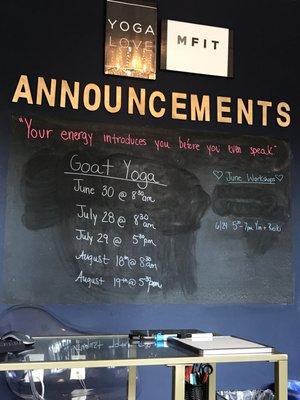 YOGA
LOVE
MFIT
ANNOUNCEMENTS
"Your energy introduces you before you even speak"
Goat Yoga
June 30 @ 8:30 am
July 28 @ 8:30 am
July 29 @ 5:30 pm
August 18th @ 8:30 am
August 19th @ 5:30 pm
♡ June Workshops ♡
6/29 5:30-7pm Yin + Reiki